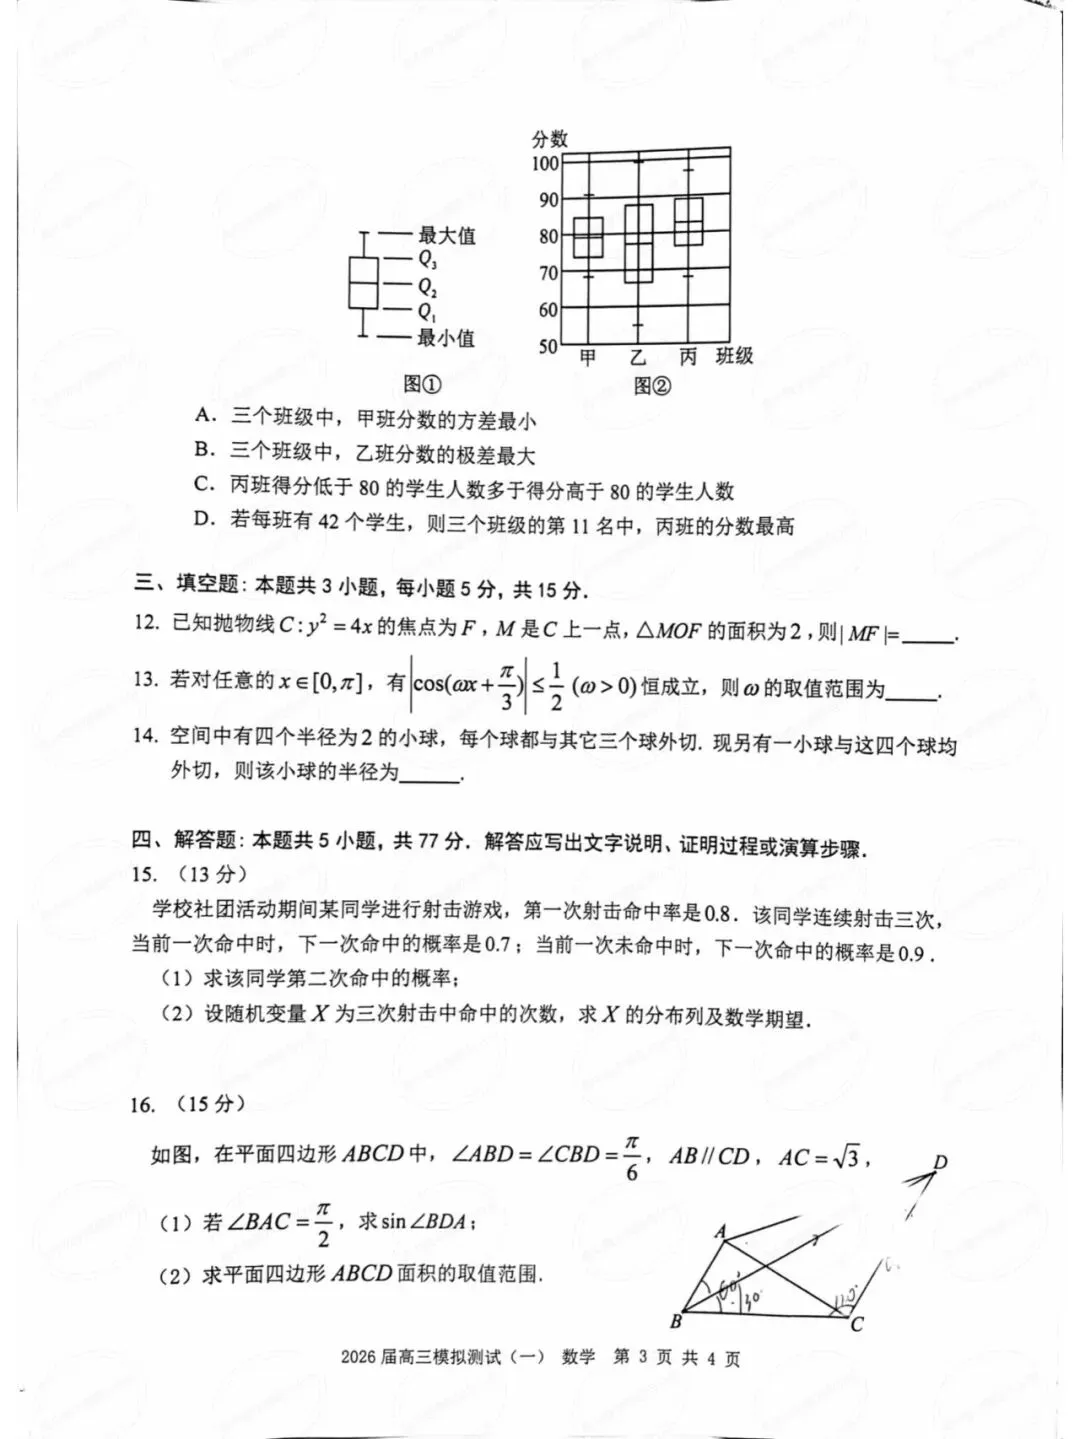 分数
100
90
80
70
60
50
甲 乙 丙 班级
最大值
Q₃
Q₂
Q₁
最小值
图① 图②
A. 三个班级中，甲班分数的方差最小
B. 三个班级中，乙班分数的极差最大
C. 丙班得分低于 80 的学生人数多于得分高于 80 的学生人数
D. 若每班有 42 个学生，则三个班级的第 11 名中，丙班的分数最高
三、填空题：本题共 3 小题，每小题 5 分，共 15 分.
12. 已知抛物线 C : y² = 4x 的焦点为 F，M 是 C 上一点，△MOF 的面积为 2，则| MF |=_____.
13. 若对任意的 x∈[0,π]，有 |cos(ωx + π/3)| ≤ 1/2 (ω > 0) 恒成立，则 ω 的取值范围为_____.
14. 空间中有四个半径为 2 的小球，每个球都与其它三个球外切. 现另有一小球与这四个球均
外切，则该小球的半径为______.
四、解答题：本题共 5 小题，共 77 分．解答应写出文字说明、证明过程或演算步骤．
15. （13 分）
学校社团活动期间某同学进行射击游戏，第一次射击命中率是 0.8．该同学连续射击三次，
当前一次命中时，下一次命中的概率是 0.7；当前一次未命中时，下一次命中的概率是 0.9．
（1）求该同学第二次命中的概率；
（2）设随机变量 X 为三次射击中命中的次数，求 X 的分布列及数学期望．
16. （15 分）
如图，在平面四边形 ABCD 中，∠ABD = ∠CBD = π/6，AB // CD，AC = √3，
（1）若 ∠BAC = π/2，求 sin∠BDA；
（2）求平面四边形 ABCD 面积的取值范围.
D
A
60°
30°
B
C
2026 届高三模拟测试（一） 数学 第 3 页 共 4 页